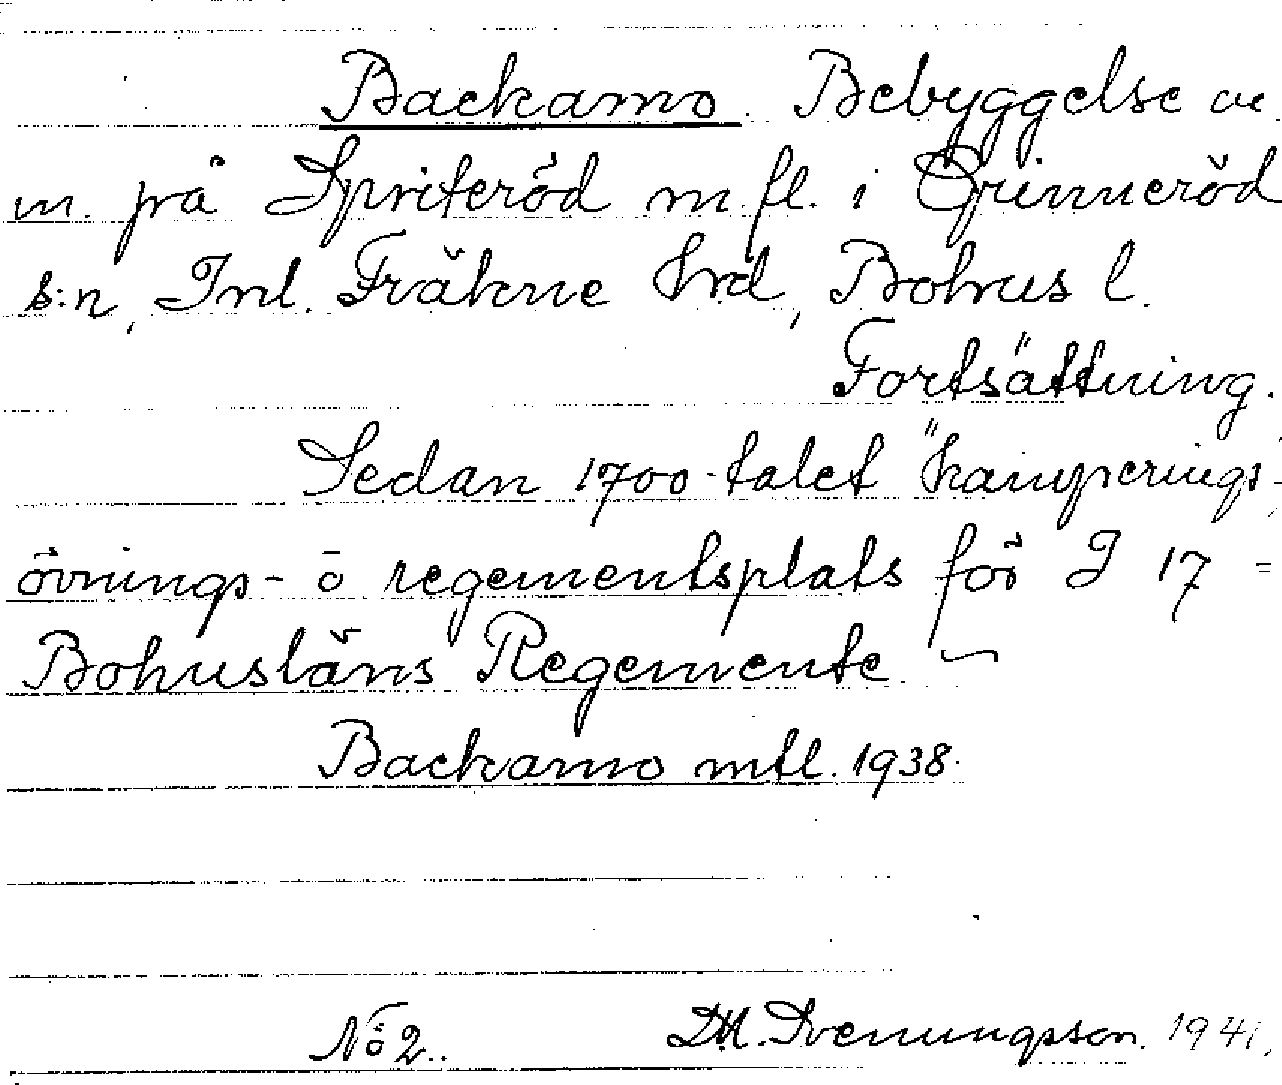 Backamo. Bebyggelse
m. på Spriteröd m.fl. i Grinneröd
s:n, Inl. Fräkne hrd, Bohus l.
Fortsättning.
Sedan 1700-talet "kamperings-,
övnings- o regementsplats för I 17 =
Bohusläns Regemente
Backamo mtl. 1938.
No 2. D.M. Svenungsson. 1941.